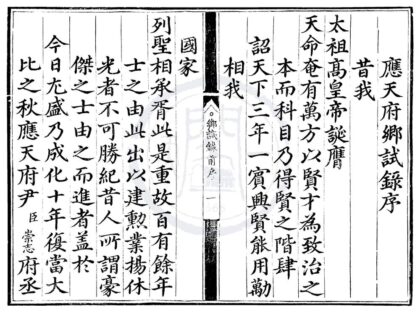 應天府鄉試錄序
昔我
太祖高皇帝誕膺
天命奄有萬方以賢才為致治之
本而科目乃得賢之階肆
詔天下三年一賓興賢能用勸
相我
鄉試錄前序 一
國家
列聖相承胥此是重故百有餘年
士之由此出以建勲業揚休
光者不可勝紀昔人所謂豪
傑之士由之而進者蓋於
今日尤盛乃成化十年復當大
比之秋應天府尹臣崇志府丞